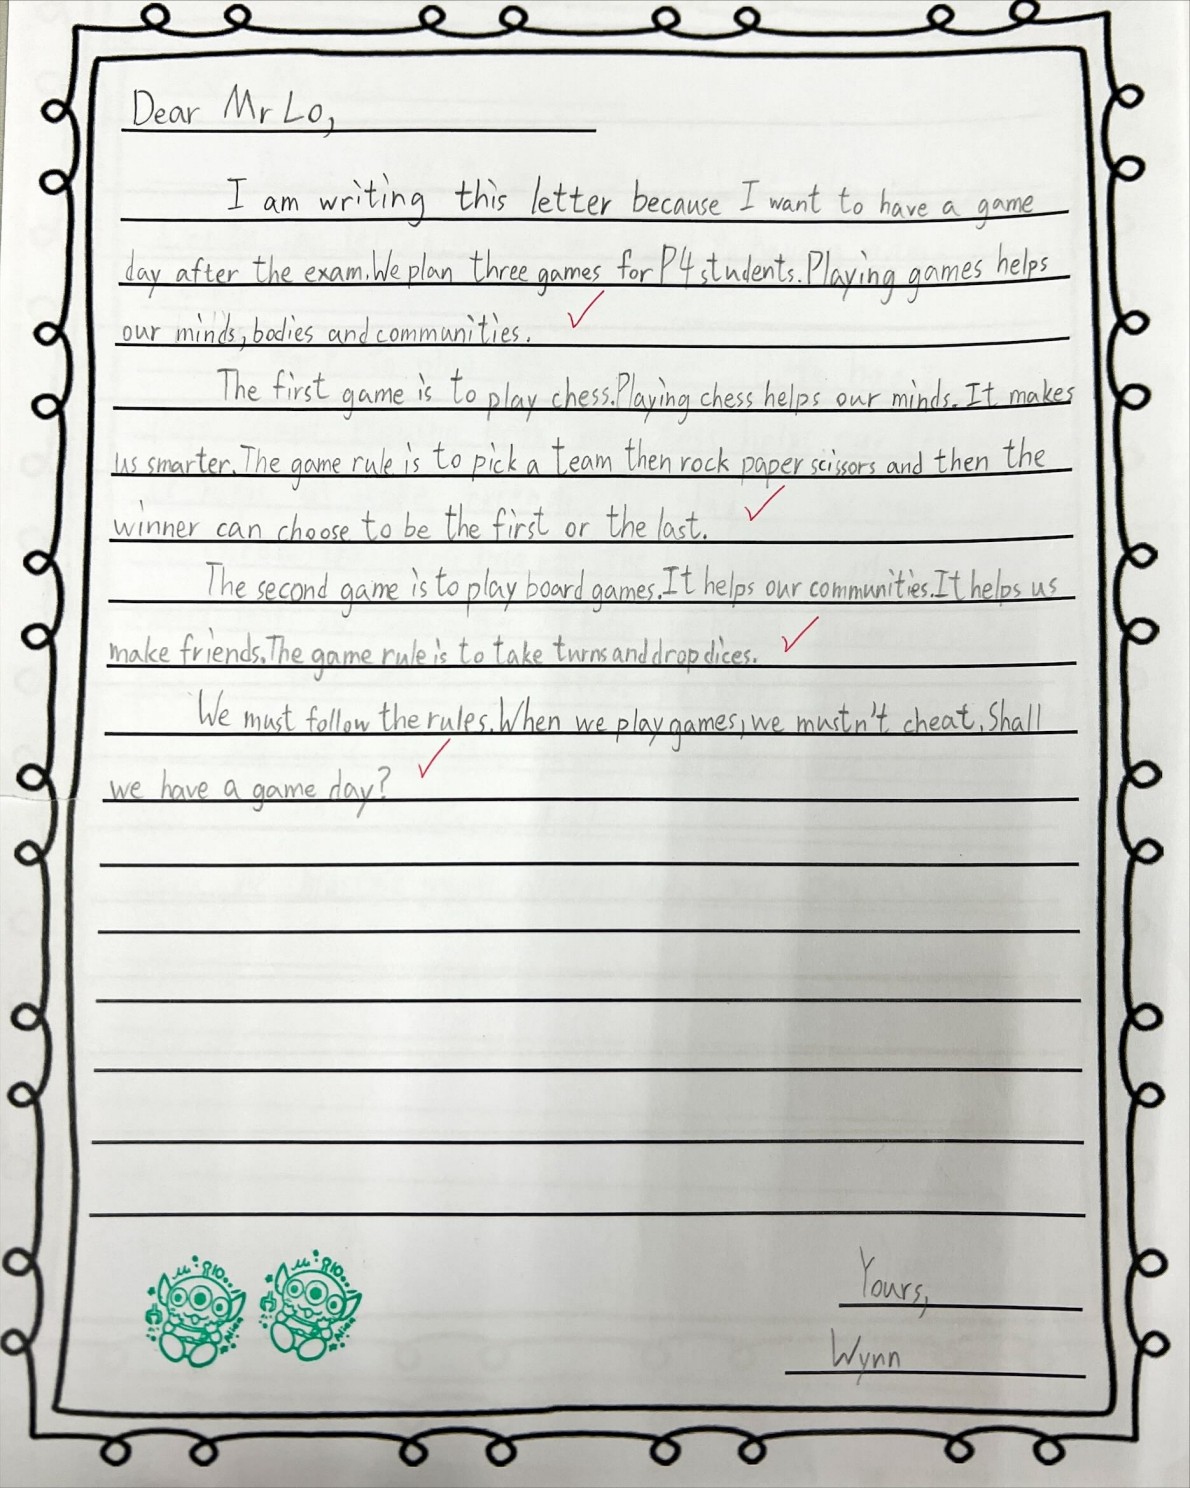 Dear Mr Lo,
I am writing this letter because I want to have a game
day after the exam. We plan three games for P4 students. Playing games helps
our minds, bodies and communities.
The first game is to play chess. Playing chess helps our minds. It makes
us smarter. The game rule is to pick a team then rock paper scissors and then the
winner can choose to be the first or the last.
The second game is to play board games. It helps our communities. It helps us
make friends. The game rule is to take turns and drop dices.
We must follow the rules. When we play games, we mustn't cheat. Shall
we have a game day?
Yours,
Wynn